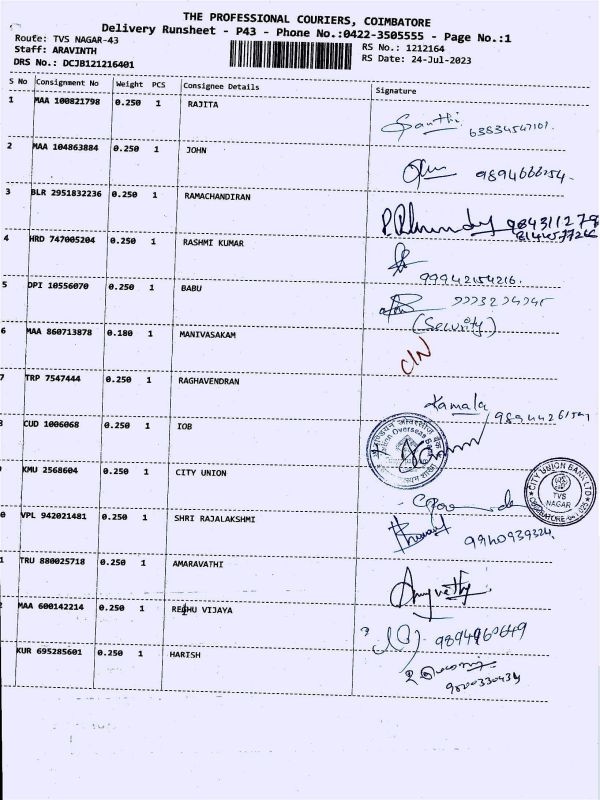 THE PROFESSIONAL COURIERS, COIMBATORE
Delivery Runsheet - P43 - Phone No.:0422-3505555 - Page No.:1
Route: TVS NAGAR-43
RS No.: 1212164
Staff: ARAVINTH
RS Date: 24-Jul-2023
DRS No.: DCJB121216401
S No Consignment No Weight PCS Consignee Details Signature
1 MAA 100821798 0.250 1 RAJITA
2 MAA 104863884 0.250 1 JOHN
3 BLR 2951832236 0.250 1 RAMACHANDIRAN
4 HRD 747005204 0.250 1 RASHMI KUMAR
99942154216.
5 DPI 10556070 0.250 1 BABU
(Security)
6 MAA 860713878 0.180 1 MANIVASAKAM
C/N
7 TRP 7547444 0.250 1 RAGHAVENDRAN
Kamala
CUD 1006068 0.250 1 IOB
Indian Overseas Bank
KMU 2568604 0.250 1 CITY UNION
CITY UNION BANK LTD.
TVS
NAGAR
0 VPL 942021481 0.250 1 SHRI RAJALAKSHMI
1 TRU 880025718 0.250 1 AMARAVATHI
MAA 600142214 0.250 1 REGHU VIJAYA
KUR 695285601 0.250 1 HARISH